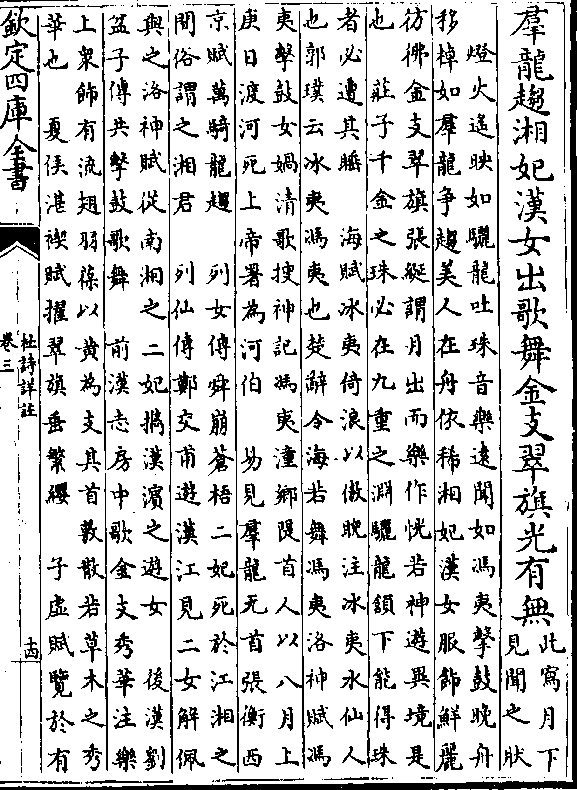 羣龍趨湘妃漢女出歌舞金支翠旗光有無此寫月下
見聞之狀
燈火遙映如驪龍吐珠音樂遠聞如馮夷擊鼓晚舟
移棹如羣龍爭趨美人在舟依稀湘妃漢女服飾鮮麗
彷彿金支翠旗張綖謂月出而樂作恍若神遊異境是
也 莊子千金之珠必在九重之淵驪龍頷下能得珠
者必遭其睡 海賦冰夷倚浪以傲睨注冰夷水仙人
也郭璞云冰夷馮夷也楚辭令海若舞馮夷洛神賦馮
夷擊鼓女媧清歌搜神記馮夷潼鄉隄首人以八月上
庚日渡河死上帝署為河伯 易見羣龍无首張衡西
京賦萬騎龍趨 列女傳舜崩蒼梧二妃死於江湘之
間俗謂之湘君 列仙傳鄭交甫遊漢江見二女解佩
與之洛神賦從南湘之二妃攜漢濱之遊女 後漢劉
盆子傳共擊鼓歌舞 前漢志房中歌金支秀華注樂
上衆飾有流翅羽葆以黄為支其首敷散若草木之秀
華也 夏侯湛禊賦擢翠旗垂繁纓 子虛賦覽於有
欽定四庫全書
杜詩詳註
卷三
十四